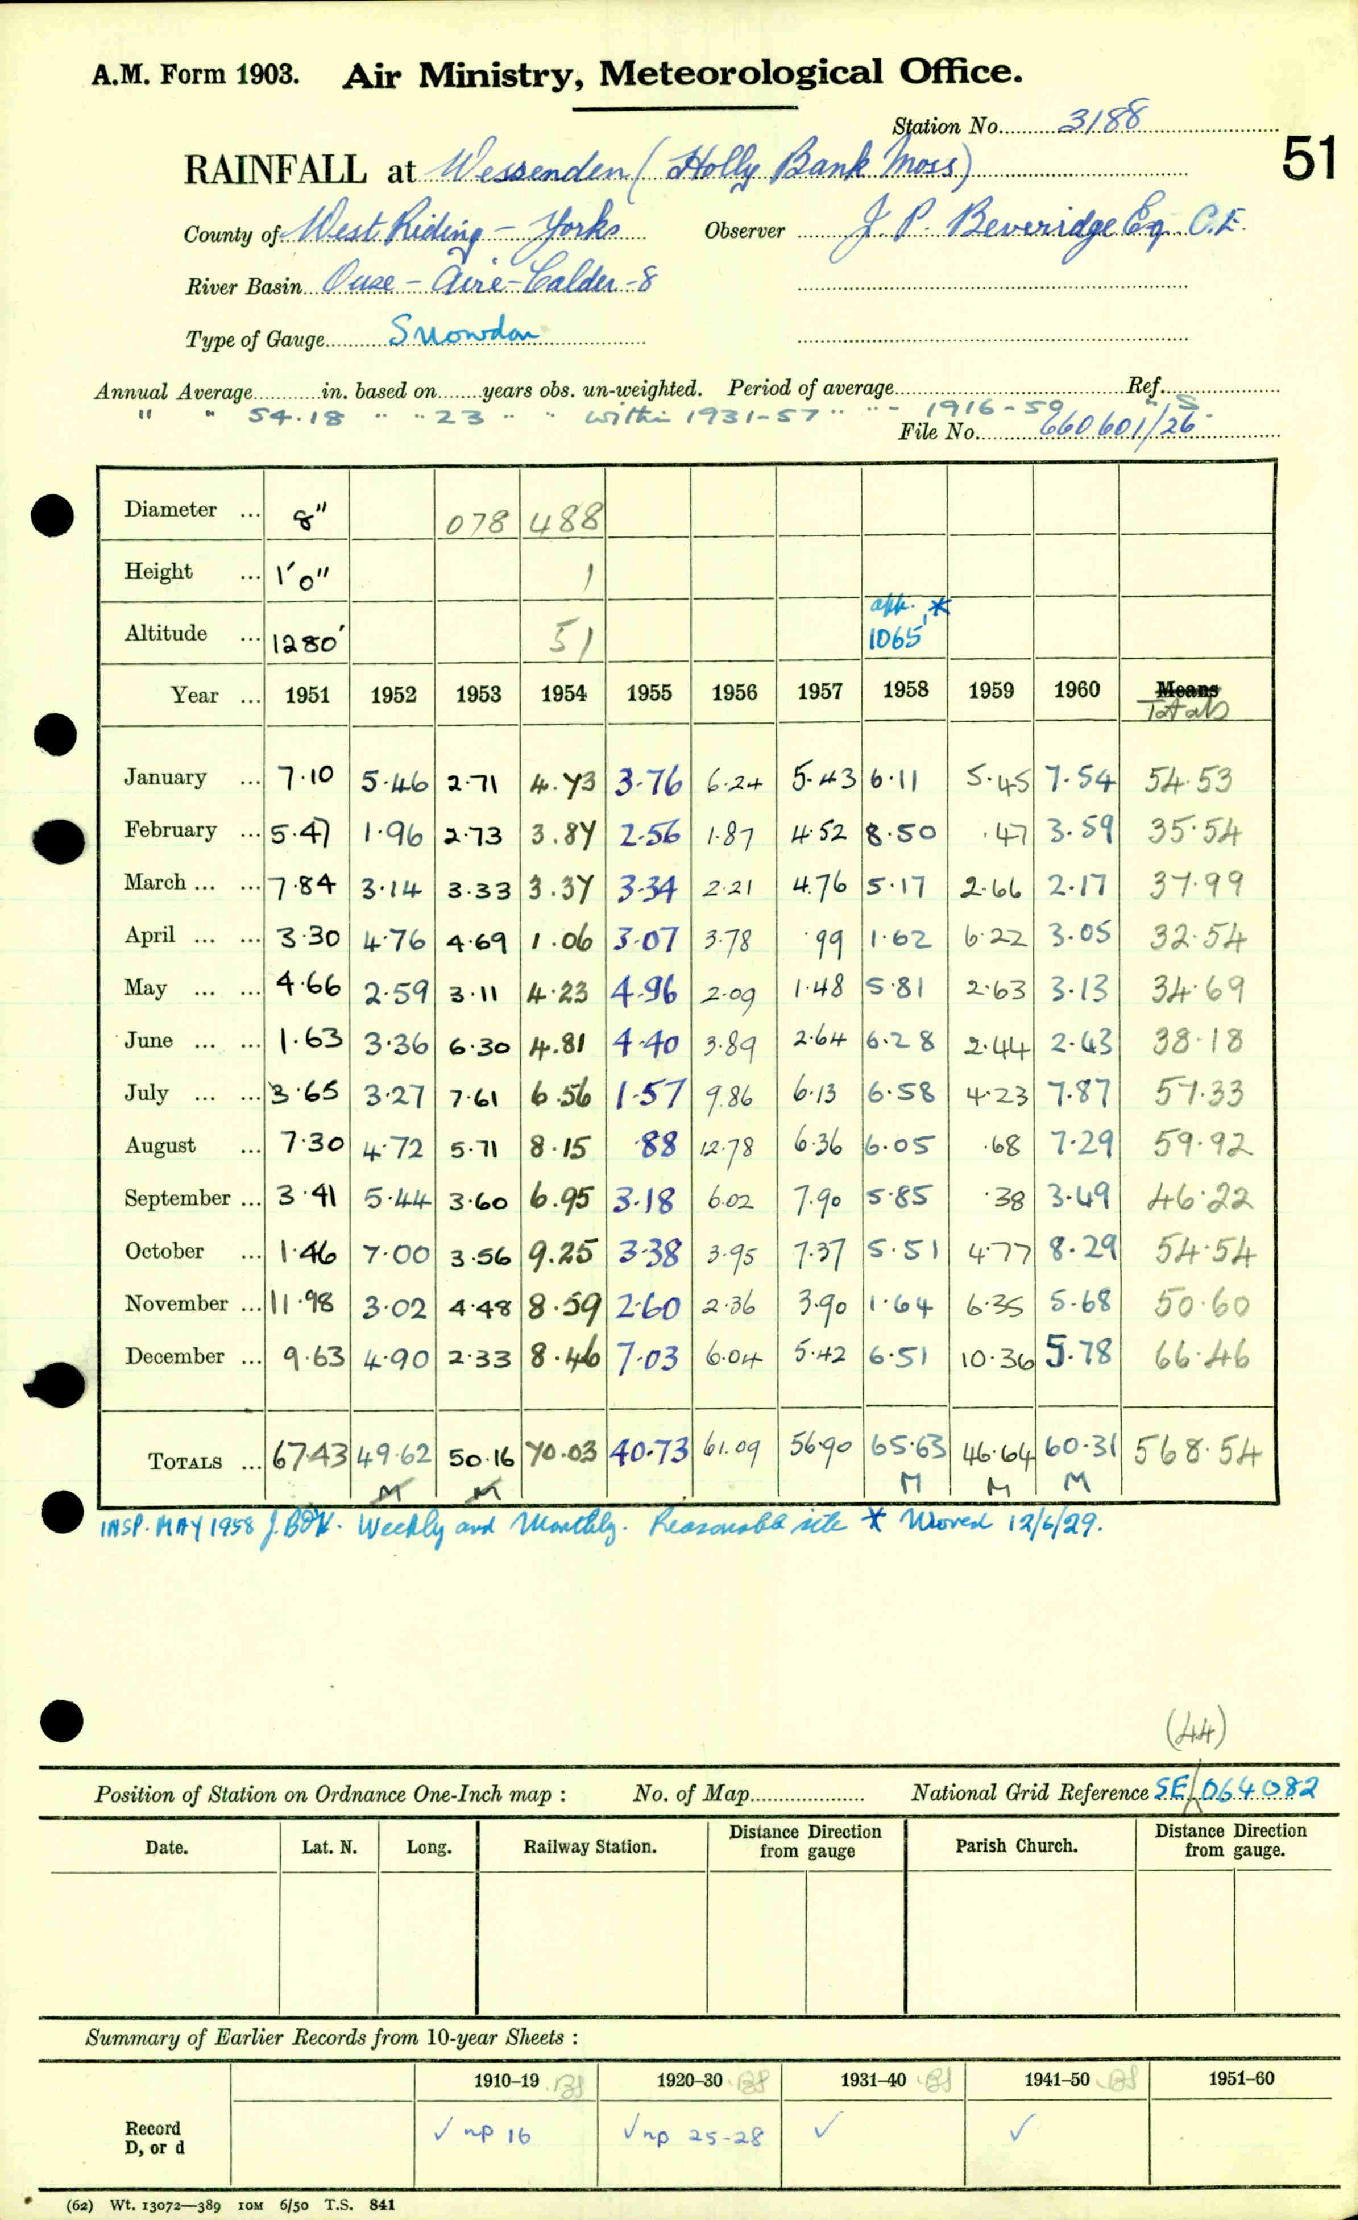 A.M. Form 1903. Air Ministry, Meteorological Office.
Station No. 3188
51
RAINFALL at Wessenden (Holly Bank Moss)
County of West Riding - Yorks Observer J. P. Beveridge Esq. C.E.
River Basin Ouse - Aire - Calder - 8
Type of Gauge Snowdon
Annual Average in. based on years obs. un-weighted. Period of average Ref.
" " 54.18 " " 23 " " within 1931-57 " " - 1916-50 " S.
File No. 660601/26
Diameter ... 8" 078 488
Height ... 1'0" 1
Altitude ... 1280' 51 app. * 1065'
Year ... 1951 1952 1953 1954 1955 1956 1957 1958 1959 1960 Means
Totals
January ... 7.10 5.46 2.71 4.73 3.76 6.24 5.43 6.11 5.45 7.54 54.53
February ... 5.47 1.96 2.73 3.87 2.56 1.87 4.52 8.50 .47 3.59 35.54
March ... ... 7.84 3.14 3.33 3.37 3.34 2.21 4.76 5.17 2.66 2.17 37.99
April ... ... 3.30 4.76 4.69 1.06 3.07 3.78 .99 1.62 6.22 3.05 32.54
May ... ... 4.66 2.59 3.11 4.23 4.96 2.09 1.48 5.81 2.63 3.13 34.69
June ... ... 1.63 3.36 6.30 4.81 4.40 3.89 2.64 6.28 2.44 2.43 38.18
July ... ... 3.65 3.27 7.61 6.56 1.57 9.86 6.13 6.58 4.23 7.87 57.33
August ... 7.30 4.72 5.71 8.15 .88 12.78 6.36 6.05 .68 7.29 59.92
September ... 3.41 5.44 3.60 6.95 3.18 6.02 7.90 5.85 .38 3.49 46.22
October ... 1.46 7.00 3.56 9.25 3.38 3.95 7.37 5.51 4.77 8.29 54.54
November ... 11.98 3.02 4.48 8.59 2.60 2.36 3.90 1.64 6.35 5.68 50.60
December ... 9.63 4.90 2.33 8.46 7.03 6.04 5.42 6.51 10.36 5.78 66.46
TOTALS ... 67.43 49.62 50.16 70.03 40.73 61.09 56.90 65.63 46.64 60.31 568.54
M M M M M
INSP. MAY 1958 Weekly and Monthly. Reasonable site * Moved 12/6/29.
(44)
Position of Station on Ordnance One-Inch map : No. of Map National Grid Reference SE/064082
Date. Lat. N. Long. Railway Station. Distance Direction from gauge Parish Church. Distance Direction from gauge.
Summary of Earlier Records from 10-year Sheets :
1910–19 1920–30 1931–40 1941–50 1951–60
Record D, or d ✓ np 16 ✓ np 25-28 ✓ ✓
(62) Wt. 13072—389 10M 6/50 T.S. 841